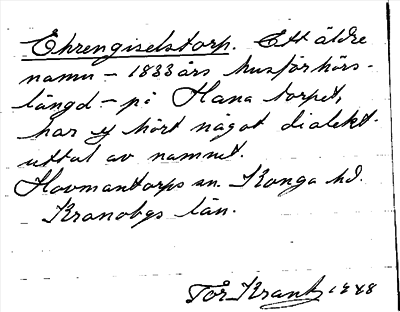 Ehrengiselstorp. Ett äldre
namn - 1833 års husförhörs-
längd - på Hana torpet,
har ej hört något dialekt-
uttal av namnet.
Hovmantorps sn. Konga hd.
Kronobgs län.
Tor Krantz